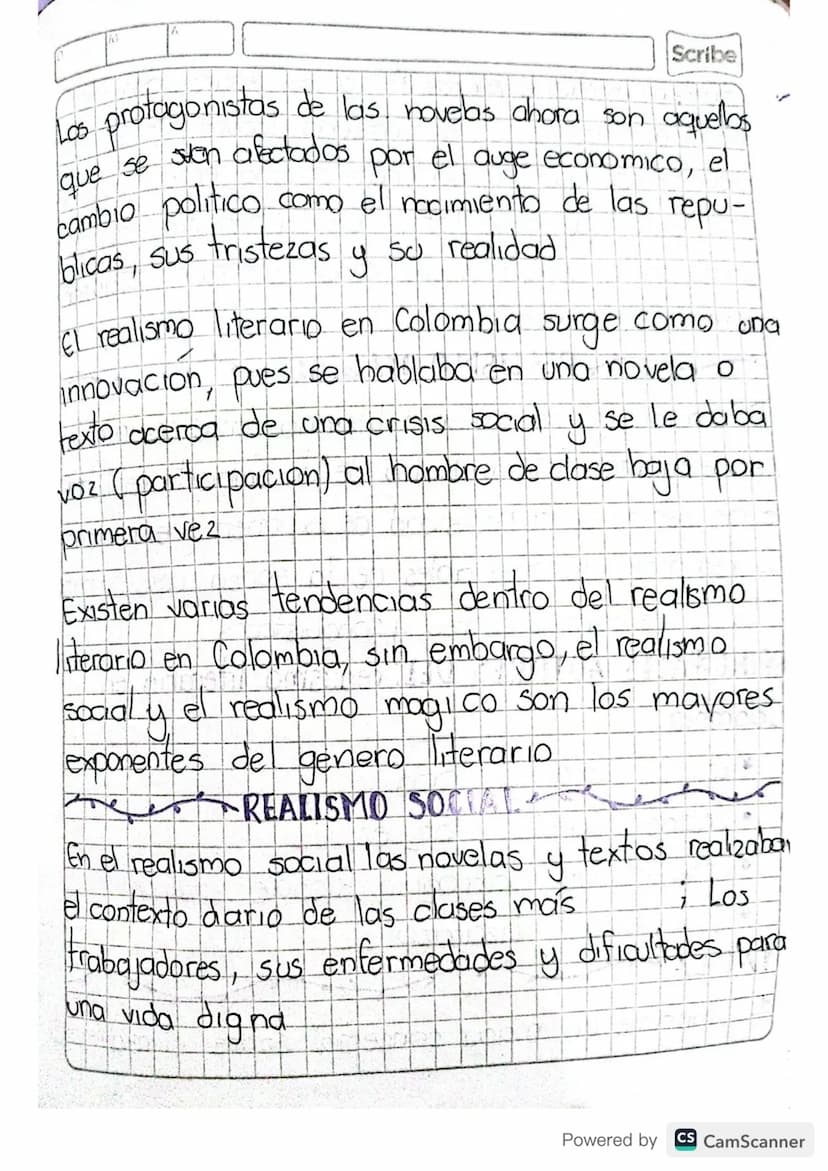 Scribe
Los protagonistas de las novelas ahora son aquellos
que se afectados por el auge economico, el
cambio politico como el nacimiento de las repu-
blicas, sus tristezas y su realidad
El realismo literario en Colombia surge como una
innovación, pues se hablaba en una novela o
texto acerca de una crisis social y se le daba
voz (participacion) al hombre de clase baja por
primera vez
Existen varias tendencias dentro del realismo
literario en Colombia, sin embargo, el realismo
social y el realismo magico son los mayores
exponentes del genero literario
REALISMO SOCIAL
En el realismo social las novelas y textos realzaban
el contexto diario de las clases más ; Los
trabajadores, sus enfermedades y dificultades para
una vida digna
Powered by CS CamScanner